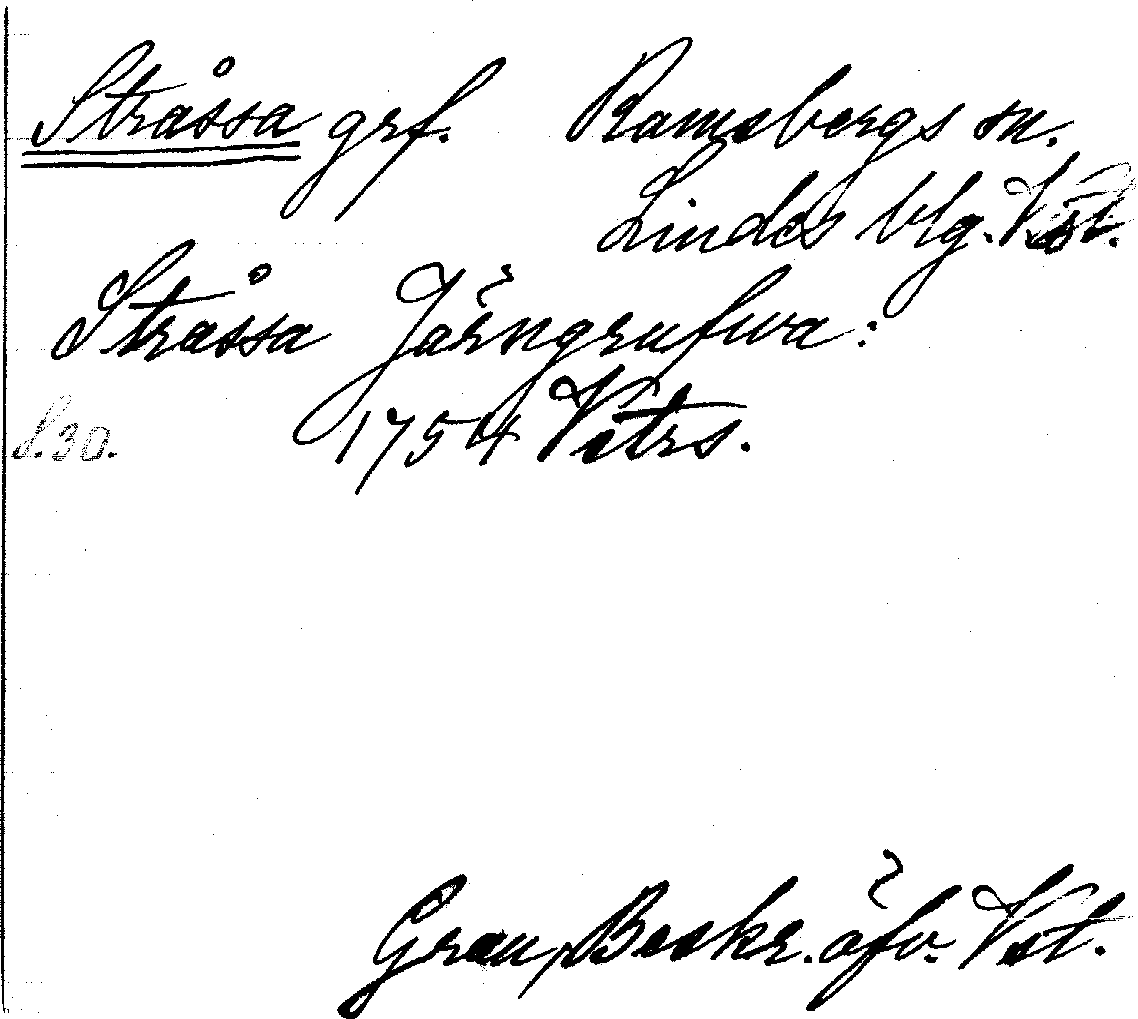 Stråssa grf. Ramsbergs sn.
Lindes blg. Vst.
Stråssa Järngrufwa:
S.30. 1754 Vstrs.
Grau, Beskr. öfv. Vst.